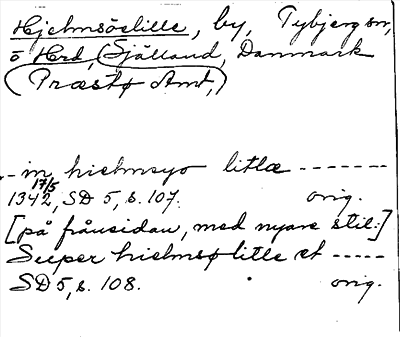 Hjelmsölille, by, Tybjerg sn,
ö Hrd, (Själland, Danmark
(Præstø Amt,)
-- in hielmsyo litlæ -------
1342 17/5, SD 5, s. 107. orig.
[på frånsidan, med nyare stil:]
Super hielmsø litle et -----
SD 5, s. 108. orig.